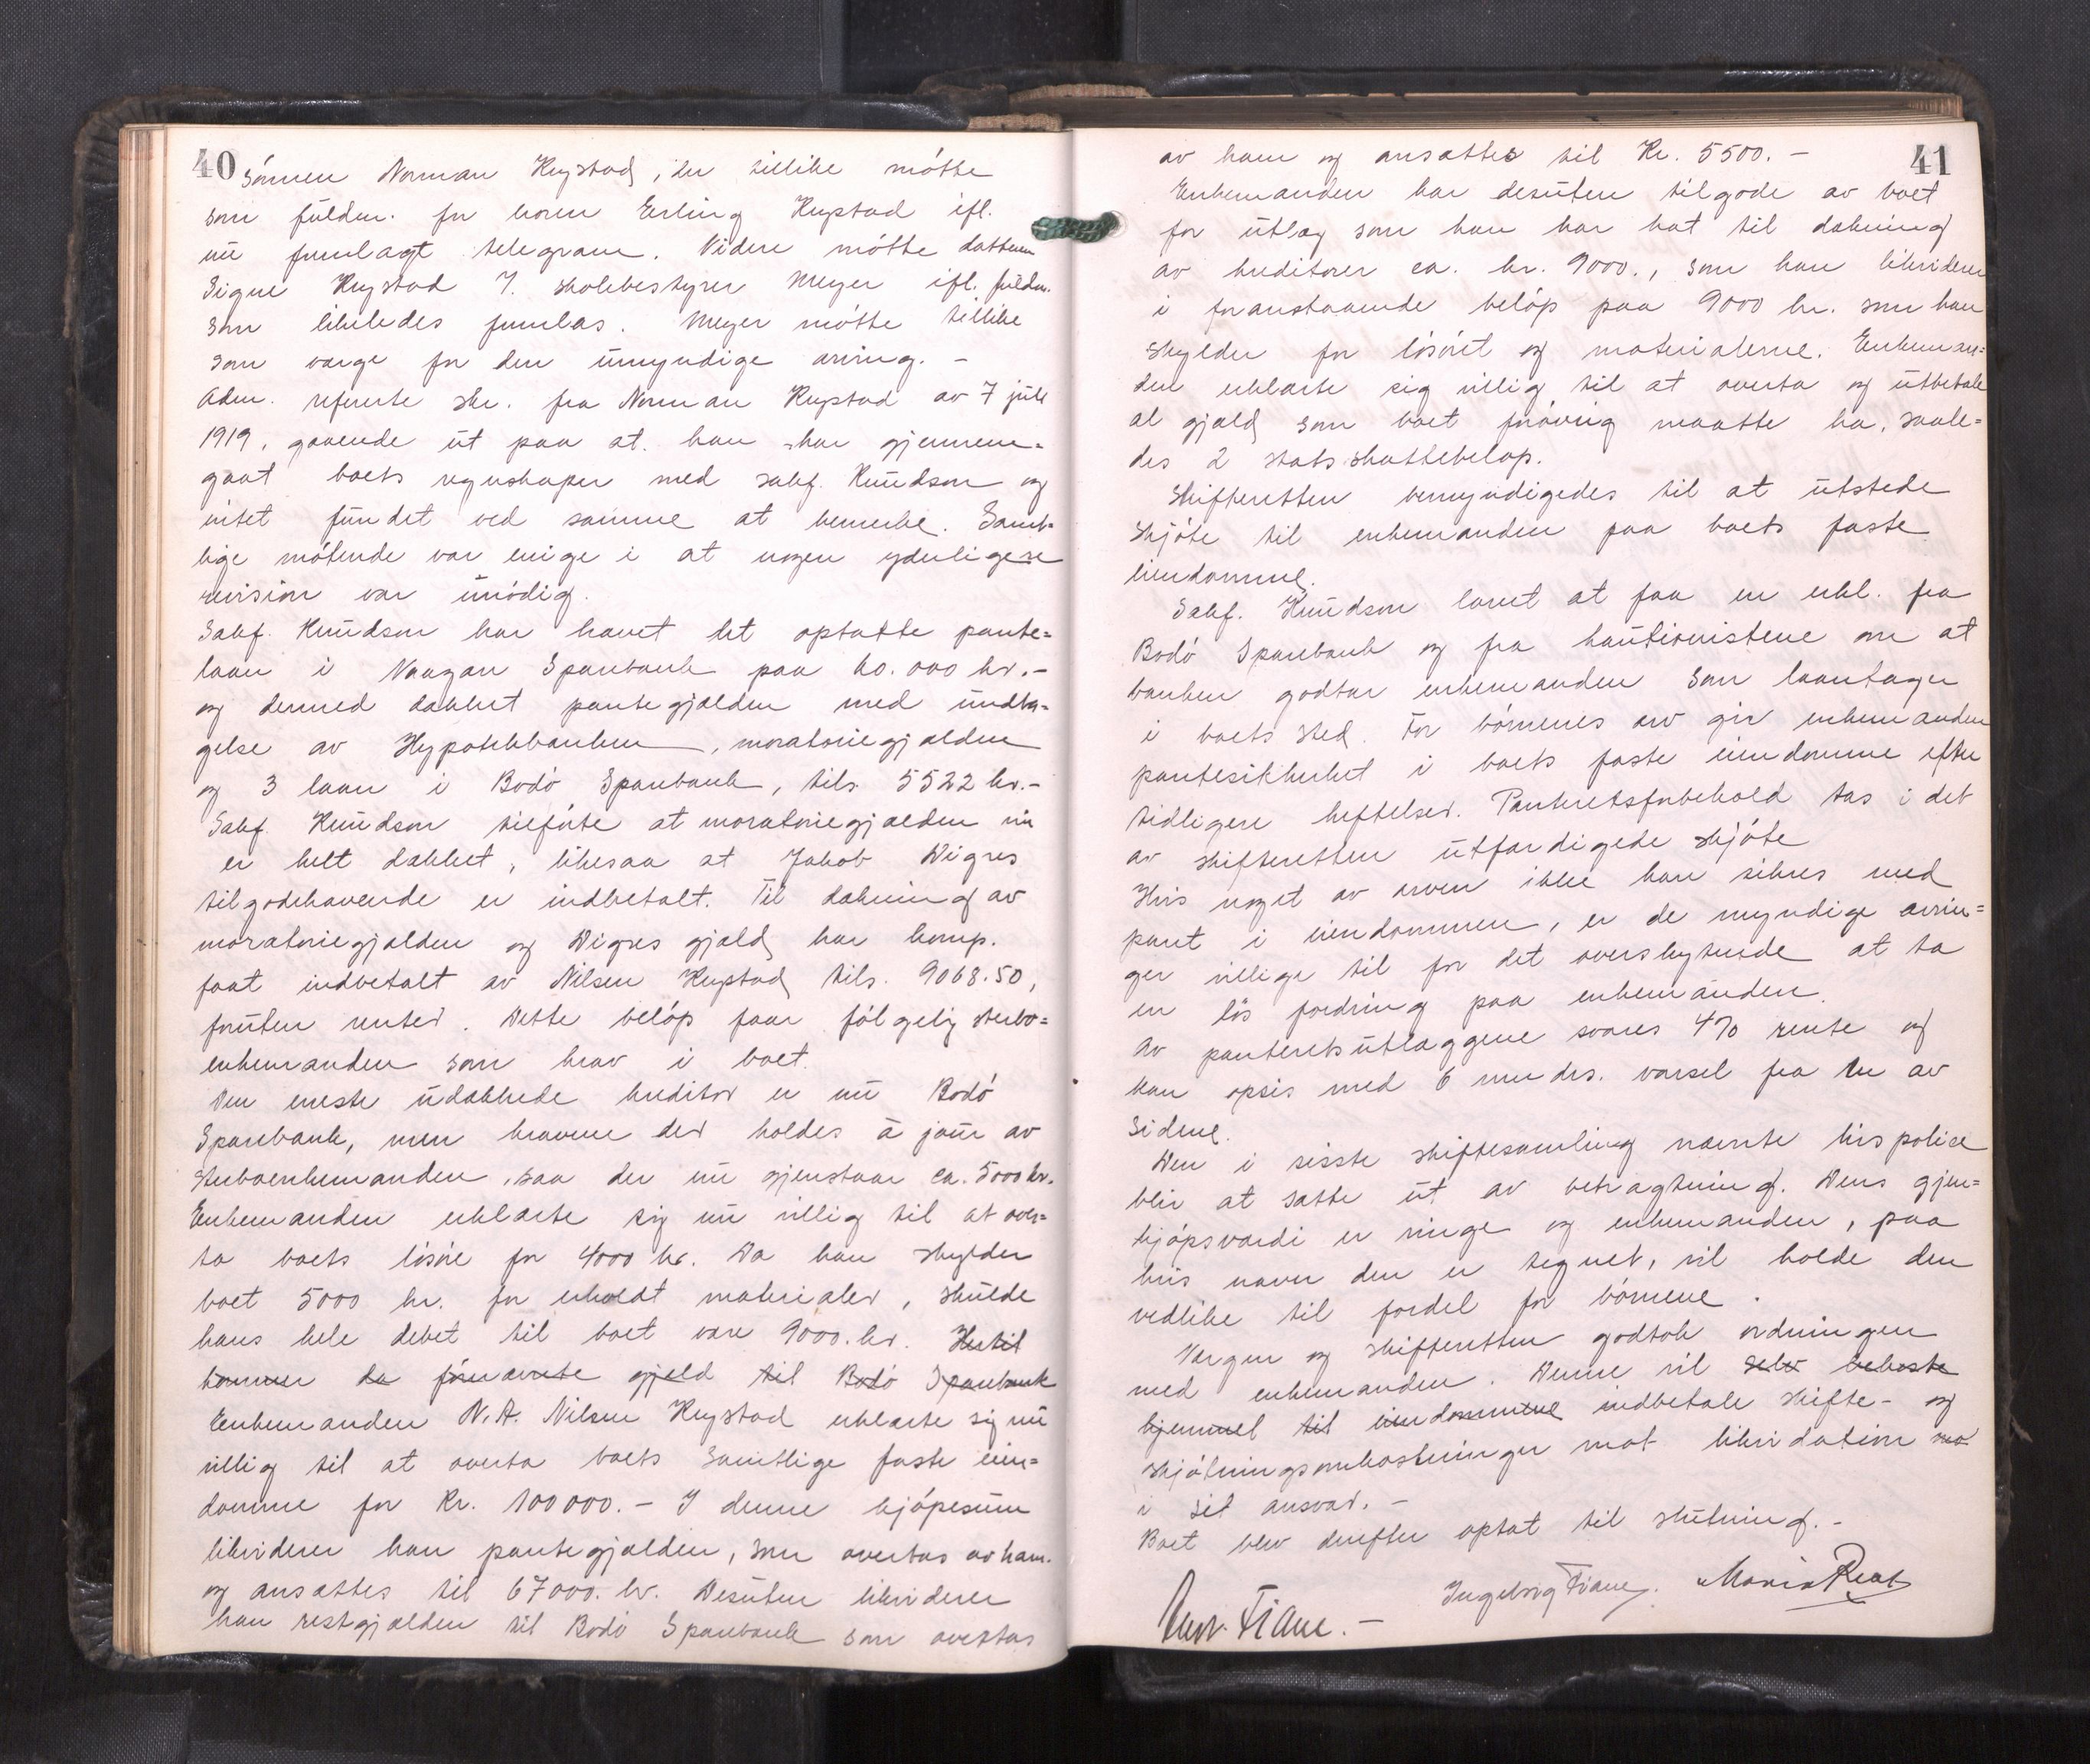 40
Sönnen Norman Kystad, der tillike mötte
som fuldm. for broren Erling Kystad ifl.
nu fremlagt telegram. Videre mötte datteren
Signe Kystad v. skolebestyrer Meyer ifl. fuldm.
som likeledes fremlas. Meyer mötte tillike
som værge for den umyndige arving. -
Adm. refererte skr. fra Norman Kystad av 7 juli
1919, gaaende ut paa at han har gjennem-
gaat boets regnskaper med sakf. Knudsen og
intet fundet ved samme at bemerke. Samt-
lige mötende var enige i at nogen yderligere
revision var unödig.
Sakf. Knudsen har hævet det optatte pante-
laan i Vaagan Sparebank paa 60.000 kr.-
og dermed dækket pantegjælden med undta-
gelse av Hypotekbanken, moratoriegjælden
og 3 laan i Bodö Sparebank, tils. 5522 kr.-
Sakf. Knudsen tilförte at moratoriegjælden nu
er helt dækket, likesaa at Jakob Digres
tilgodehavende er indbetalt. Til dækning av
moratoriegjælden og Digres gjæld har komp.
faat indbetalt av Nilsen Kystad tils. 9068.50,
foruten renter. Dette belöp faar fölgelig sterbo-
enkemanden som krav i boet.
Den eneste udækkede kreditor er nu Bodö
Sparebank, men kravene der holdes à jour av
sterboenkemanden, saa der nu gjenstaar ca. 5000 kr.
Enkemanden erklærte sig nu villig til at over-
ta boets lösöre for 4000 kr. Da han skylder
boet 5000 kr. for erholdt materialer, skulde
hans hele debet til boet være 9000. kr. Hertil
kommer da förnævnte gjæld til Bodö Sparebank
Enkemanden N.A. Nilsen Kystad erklærte sig nu
villig til at overta boets samtlige faste eien-
domme for Kr. 100000.- I denne kjöpesum
likviderer han pantegjælden, som overtas av ham
og ansættes til 67000. kr. Desuten likviderer
han restgjælden til Bodö Sparebank som overtas
41
av ham og ansættes til Kr. 5500.-
Enkemanden har desuten tilgode av boet
for utlæg som han har hat til dækning
av kreditorer ca. kr. 9000., som han likviderer
i foranstaaende belöp paa 9000 kr. som han
skylder for lösöret og materialerne. Enkeman-
den erklærte sig villig til at overta og utbetale
al gjæld som boet forövrig maatte ha, saale-
des 2 statsskattebelöp.
Skifteretten bemyndigedes til at utstede
skjöte til enkemanden paa boets faste
eiendomme.
Sakf. Knudsen lovet at faa en erkl. fra
Bodö Sparebank og fra kautionistene om at
banken godtar enkemanden som laantager
i boets sted. For börnenes arv gir enkemanden
pantesikkerhet i boets faste eiendomme efter
tidligere heftelser. Panteretsforbehold tas i det
av skifteretten utfærdigede skjöte
Hvis noget av arven ikke kan sikres med
pant i eiendommen, er de myndige arvin-
ger villige til for det overskytende at ta
en lös fordring paa enkemanden.
Av panteretsutlæggene svares 4% rente og
kan opsis med 6 mndrs. varsel fra en av
sidene.
Den i sisste skiftesamling nævnte livspolice
blir at sætte ut av betragtning. Dens gjen-
kjöpsværdi er ringe og enkemanden, paa
hvis navn den er tegnet, vil holde den
vedlike til fordel for börnene.
Værgen og skifteretten godtok ordningen
med enkemanden. Denne vil selv bekoste
hjemmel til eiendommene indbetale skifte- og
skjötningsomkostninger mot likvidation
i sit ansvar. -
Boet blev derefter optat til slutning. -
Ingeborg Fiane. Maria
Fiane. -